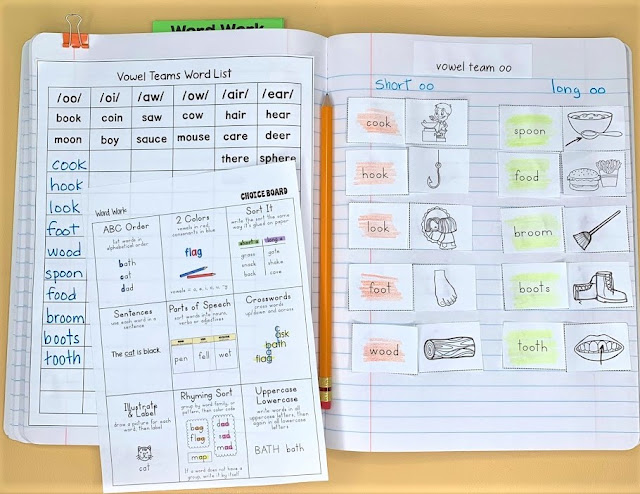 Word Work
Vowel Teams Word List
/oo/ /oi/ /aw/ /ow/ /air/ /ear/
book coin saw cow hair hear
moon boy sauce mouse care deer
cook there sphere
hook
look
foot
wood
spoon
food
broom
boots
tooth
Word Work CHOICE BOARD
ABC Order
list words in
alphabetical order
bath
cat
dad
2 Colors
vowels in red,
consonants in blue
flag
vowels = a, e, i, o, u, -y
Sort It
write the sort the same
way it's glued on paper
short a long a
grass gate
snack shake
back cave
Sentences
use each word in a
sentence
The cat is black.
Parts of Speech
sort words into nouns,
verbs or adjectives
pen fell wet
Crosswords
cross words
up/down and across
ask
bath
flag
Illustrate
& Label
draw a picture for each
word. Then label
cat
Rhyming Sort
group by word family, or
pattern, then color code
bag dad
flag sad
mad
map
If a word does not have a
group, write it by itself
Uppercase
Lowercase
write words in all
uppercase letters, then
again in all lowercase
letters
BATH bath
vowel team oo
short oo long oo
cook spoon
hook food
look broom
foot boots
wood tooth